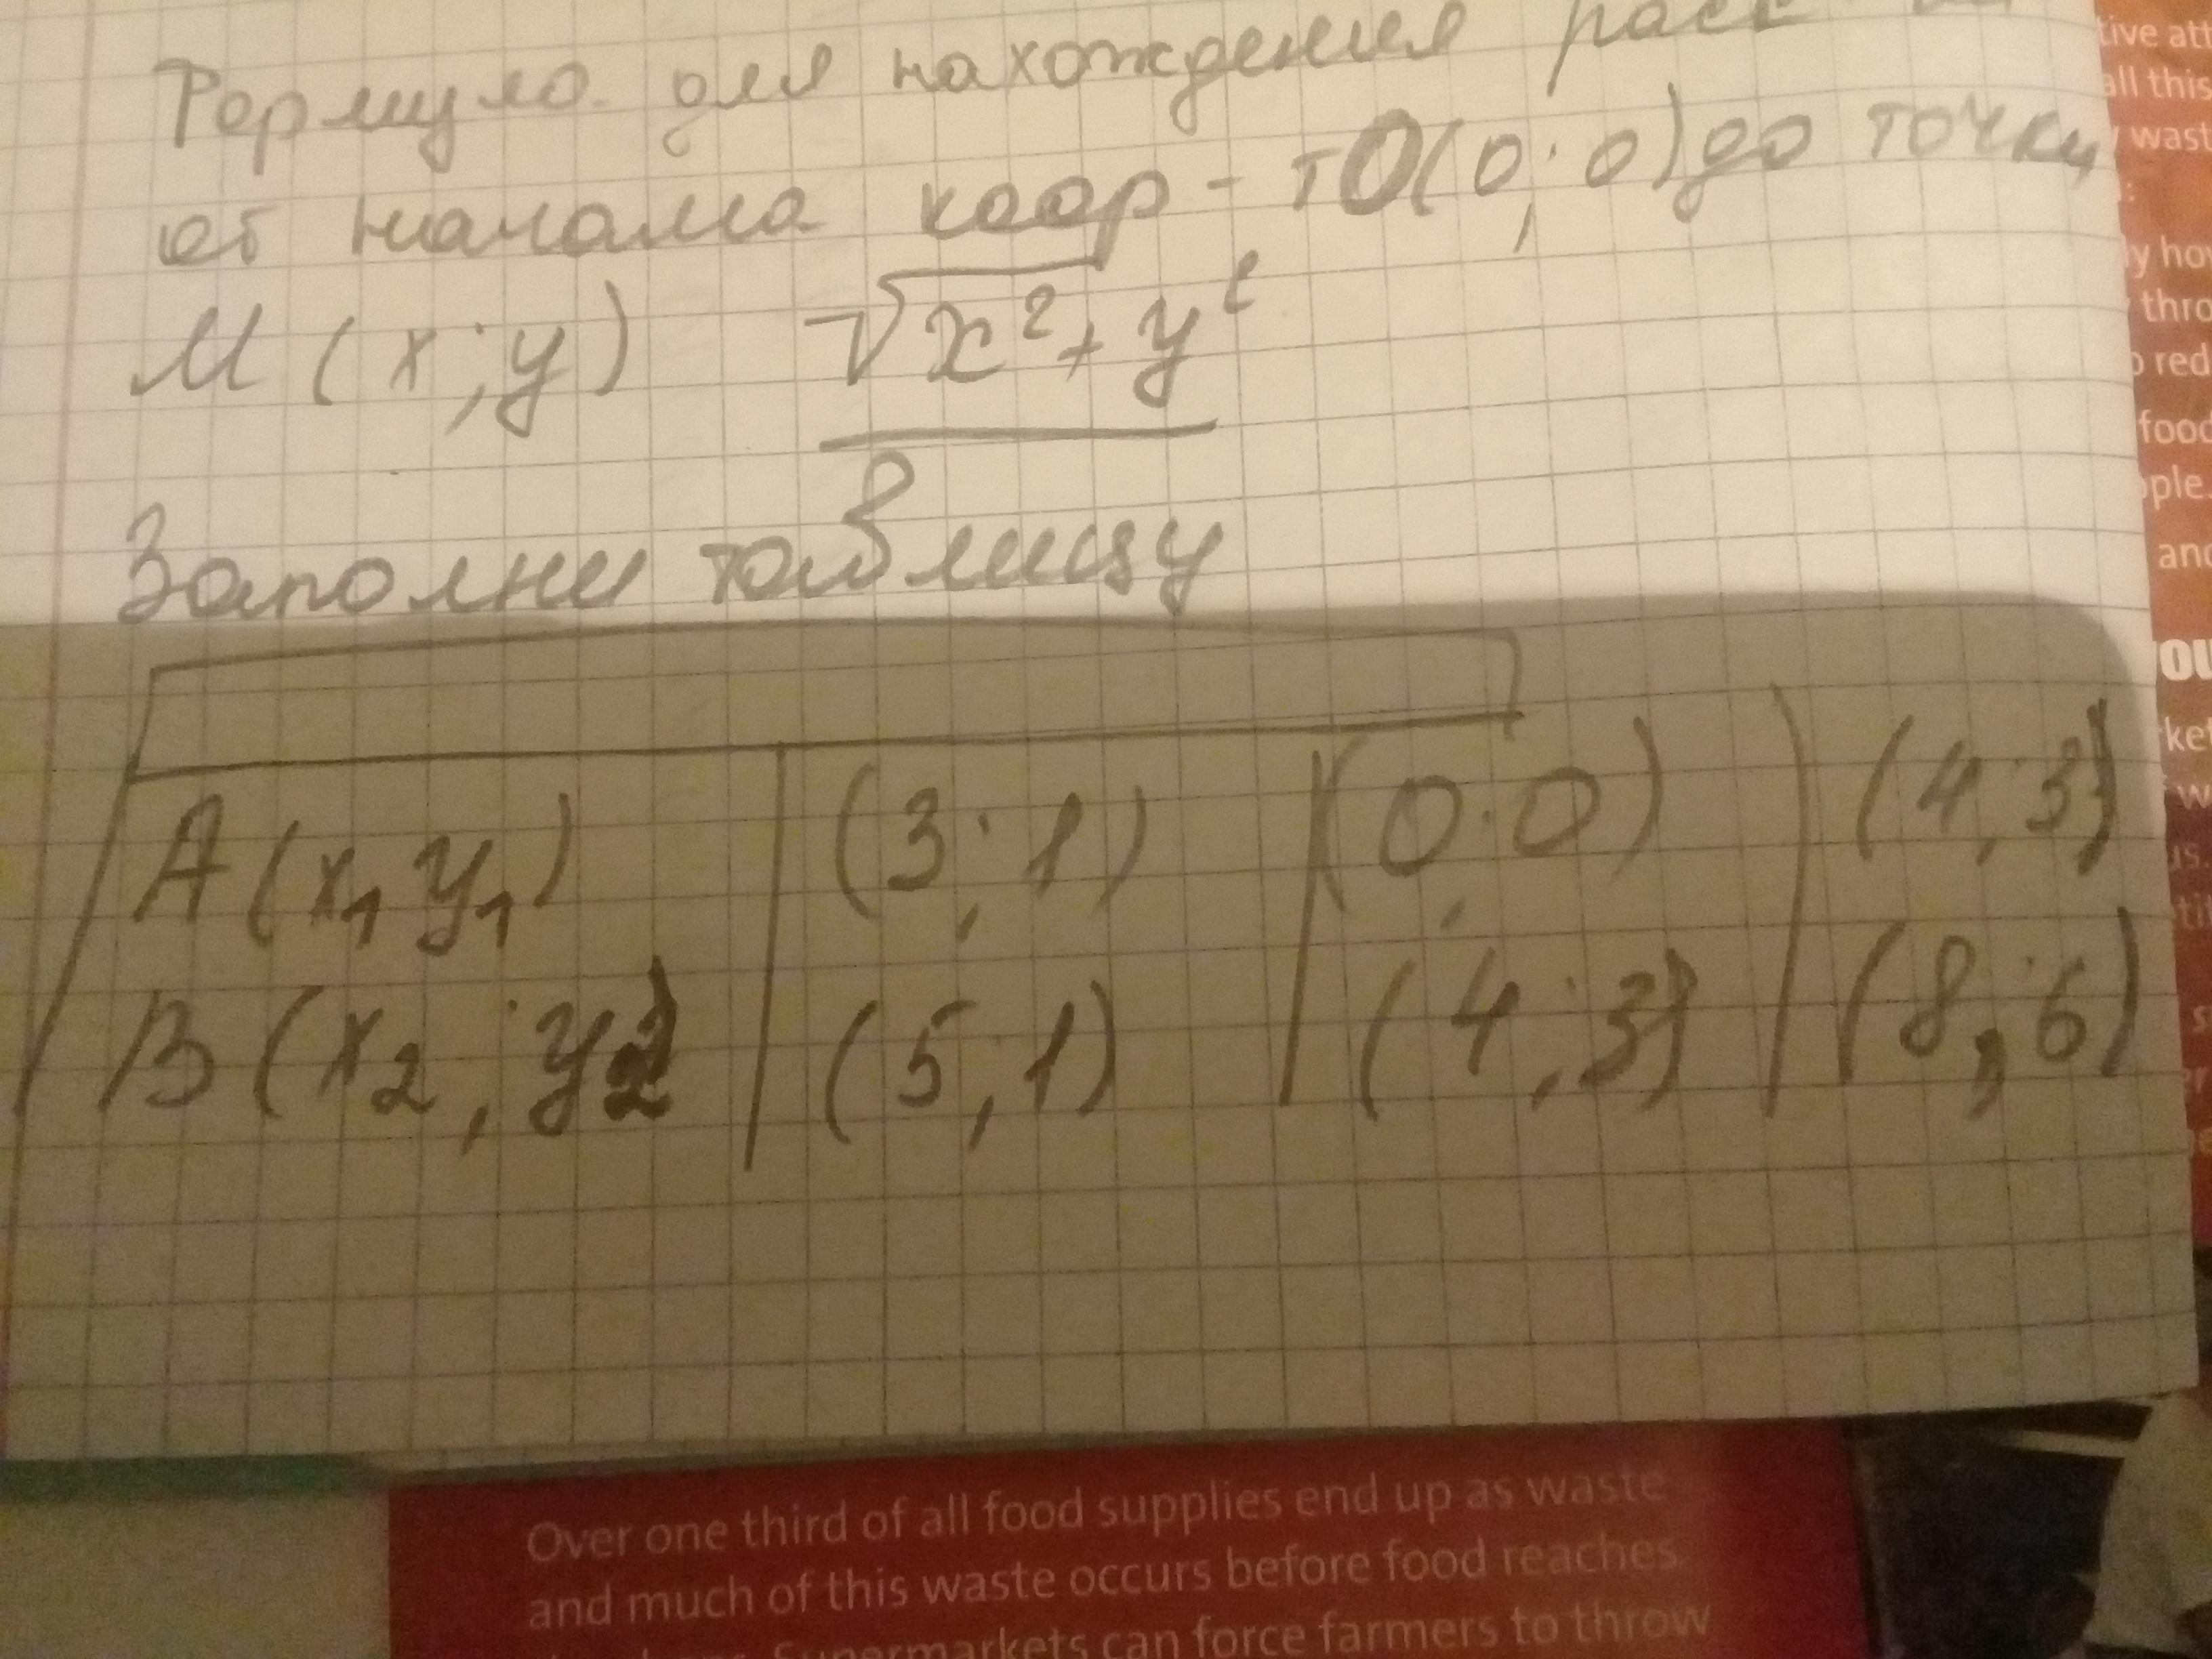 Формула для нахождения расс
от начала коор - т O(0;0) до точки
M (x;y) √x²+y²
Заполни таблицу
A(x₁ y₁) | (3;1) | (0;0) | (4;3)
B(x₂;y₂) | (5,1) | (4;3) | (8;6)
tive att
all this
y wast
ly how
thro
o red
food
ople.
and
you
rket
Over one third of all food supplies end up as waste
and much of this waste occurs before food reaches
Supermarkets can force farmers to throw